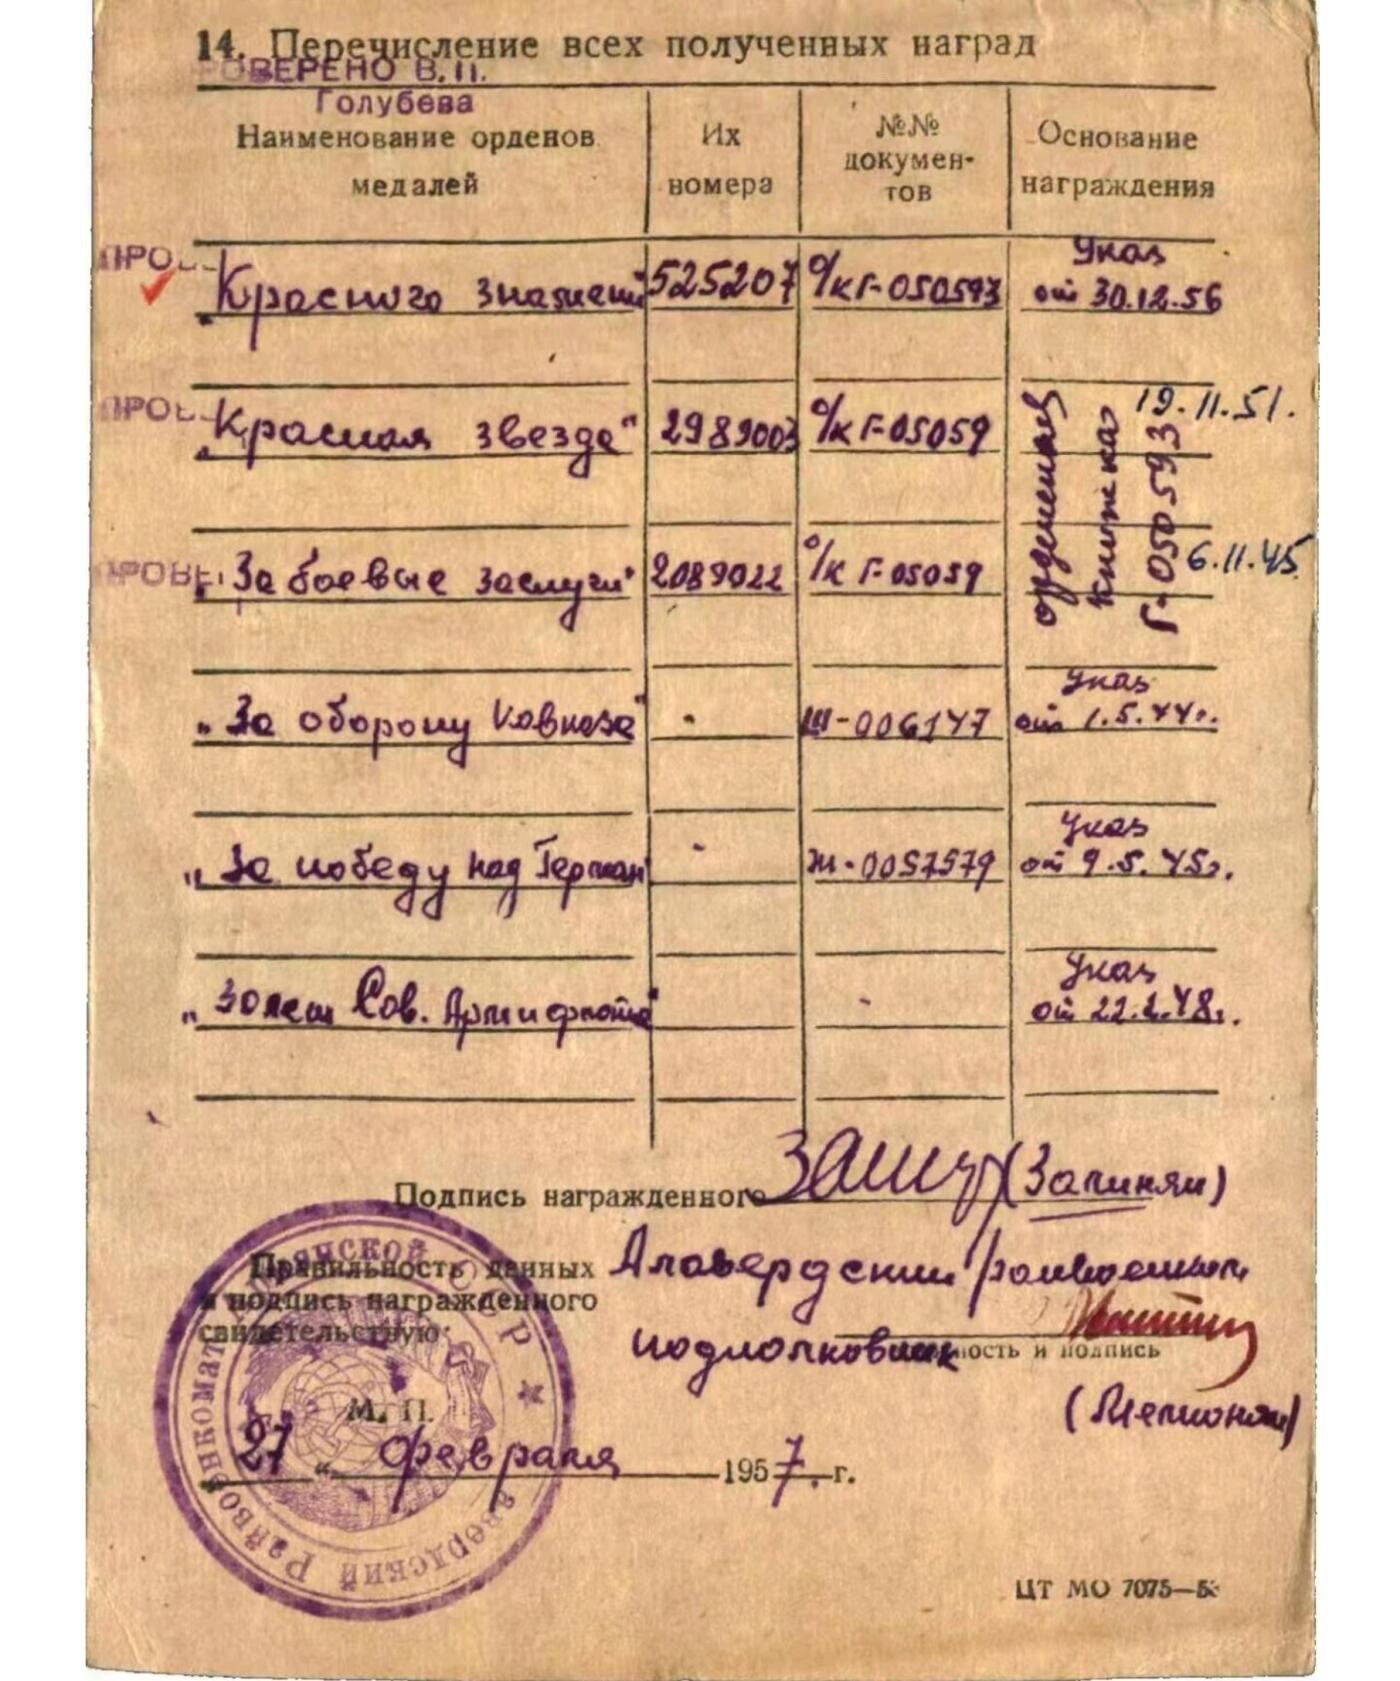 14. Перечисление всех полученных наград
ОВЕРЕНО В. П.
Голубева
Наименование орденов медалей
Их номера
№№ докумен- тов
Основание награждения
ПРОВ
„Красного знамени" 525207 о/к Г-050593 Указ от 30.12.56
ПРОВ
„Красная звезда" 2989003 о/к Г-05059 19.11.51.
орденская книжка Г-050593
ПРОВЕ
„За боевые заслуги" 2089022 о/к Г-05059 6.11.45
„За оборону Кавказа" - Ш-006147 Указ от 1.5.44г.
„За победу над Герман" - Ж-0057579 Указ от 9.5.45г.
„30 лет Сов. Арм и флота" - Указ от 22.2.48г.
Подпись награжденного (Загинян)
Правильность данных
и подпись награжденного
свидетельствую:
Алавердский райвоенком
подполковник
ность и подпись
М. П.
27 " февраля 1957. г.
янской ССР ★ авердский Райвоенкомат
ЦТ МО 7075—5